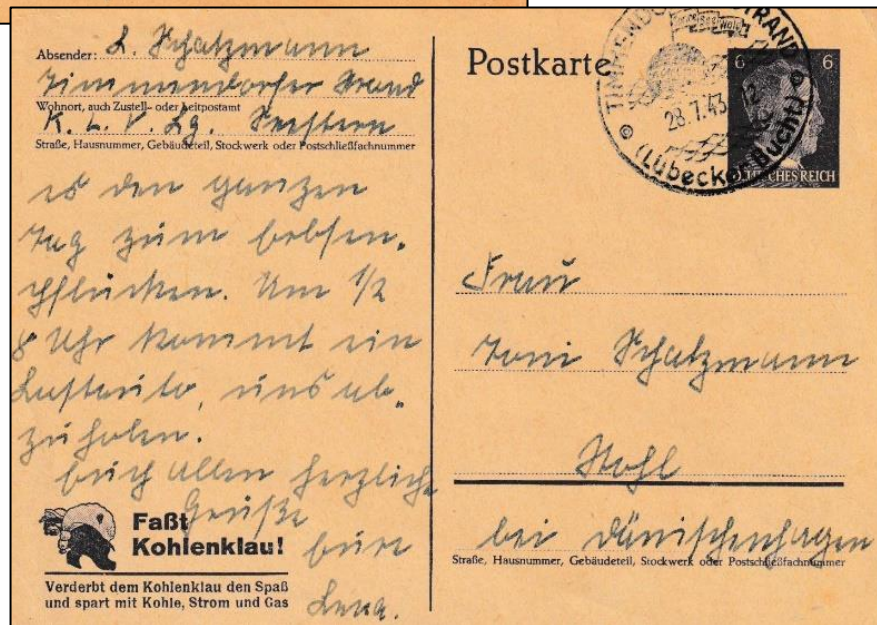 Absender: L. Schatzmann
Timmendorfer Strand
Wohnort, auch Zustell- oder Leitpostamt
K. L. V. Lg. Seestern
Straße, Hausnummer, Gebäudeteil, Stockwerk oder Postschließfachnummer
es den ganzen
Tag zum Erbsen-
pflücken. Um 1/2
8 Uhr kommt ein
Lastauto, uns ab-
zuholen.
Euch allen herzliche
Grüße
Eure
Lena.
Faßt
Kohlenklau!
Verderbt dem Kohlenklau den Spaß
und spart mit Kohle, Strom und Gas
Postkarte
TIMMENDORFER STRAND
28.7.43
(Lübecker Bucht)
6 6
DEUTSCHES REICH
Frau
Toni Schatzmann
Stohl
bei Dänischenhagen
Straße, Hausnummer, Gebäudeteil, Stockwerk oder Postschließfachnummer